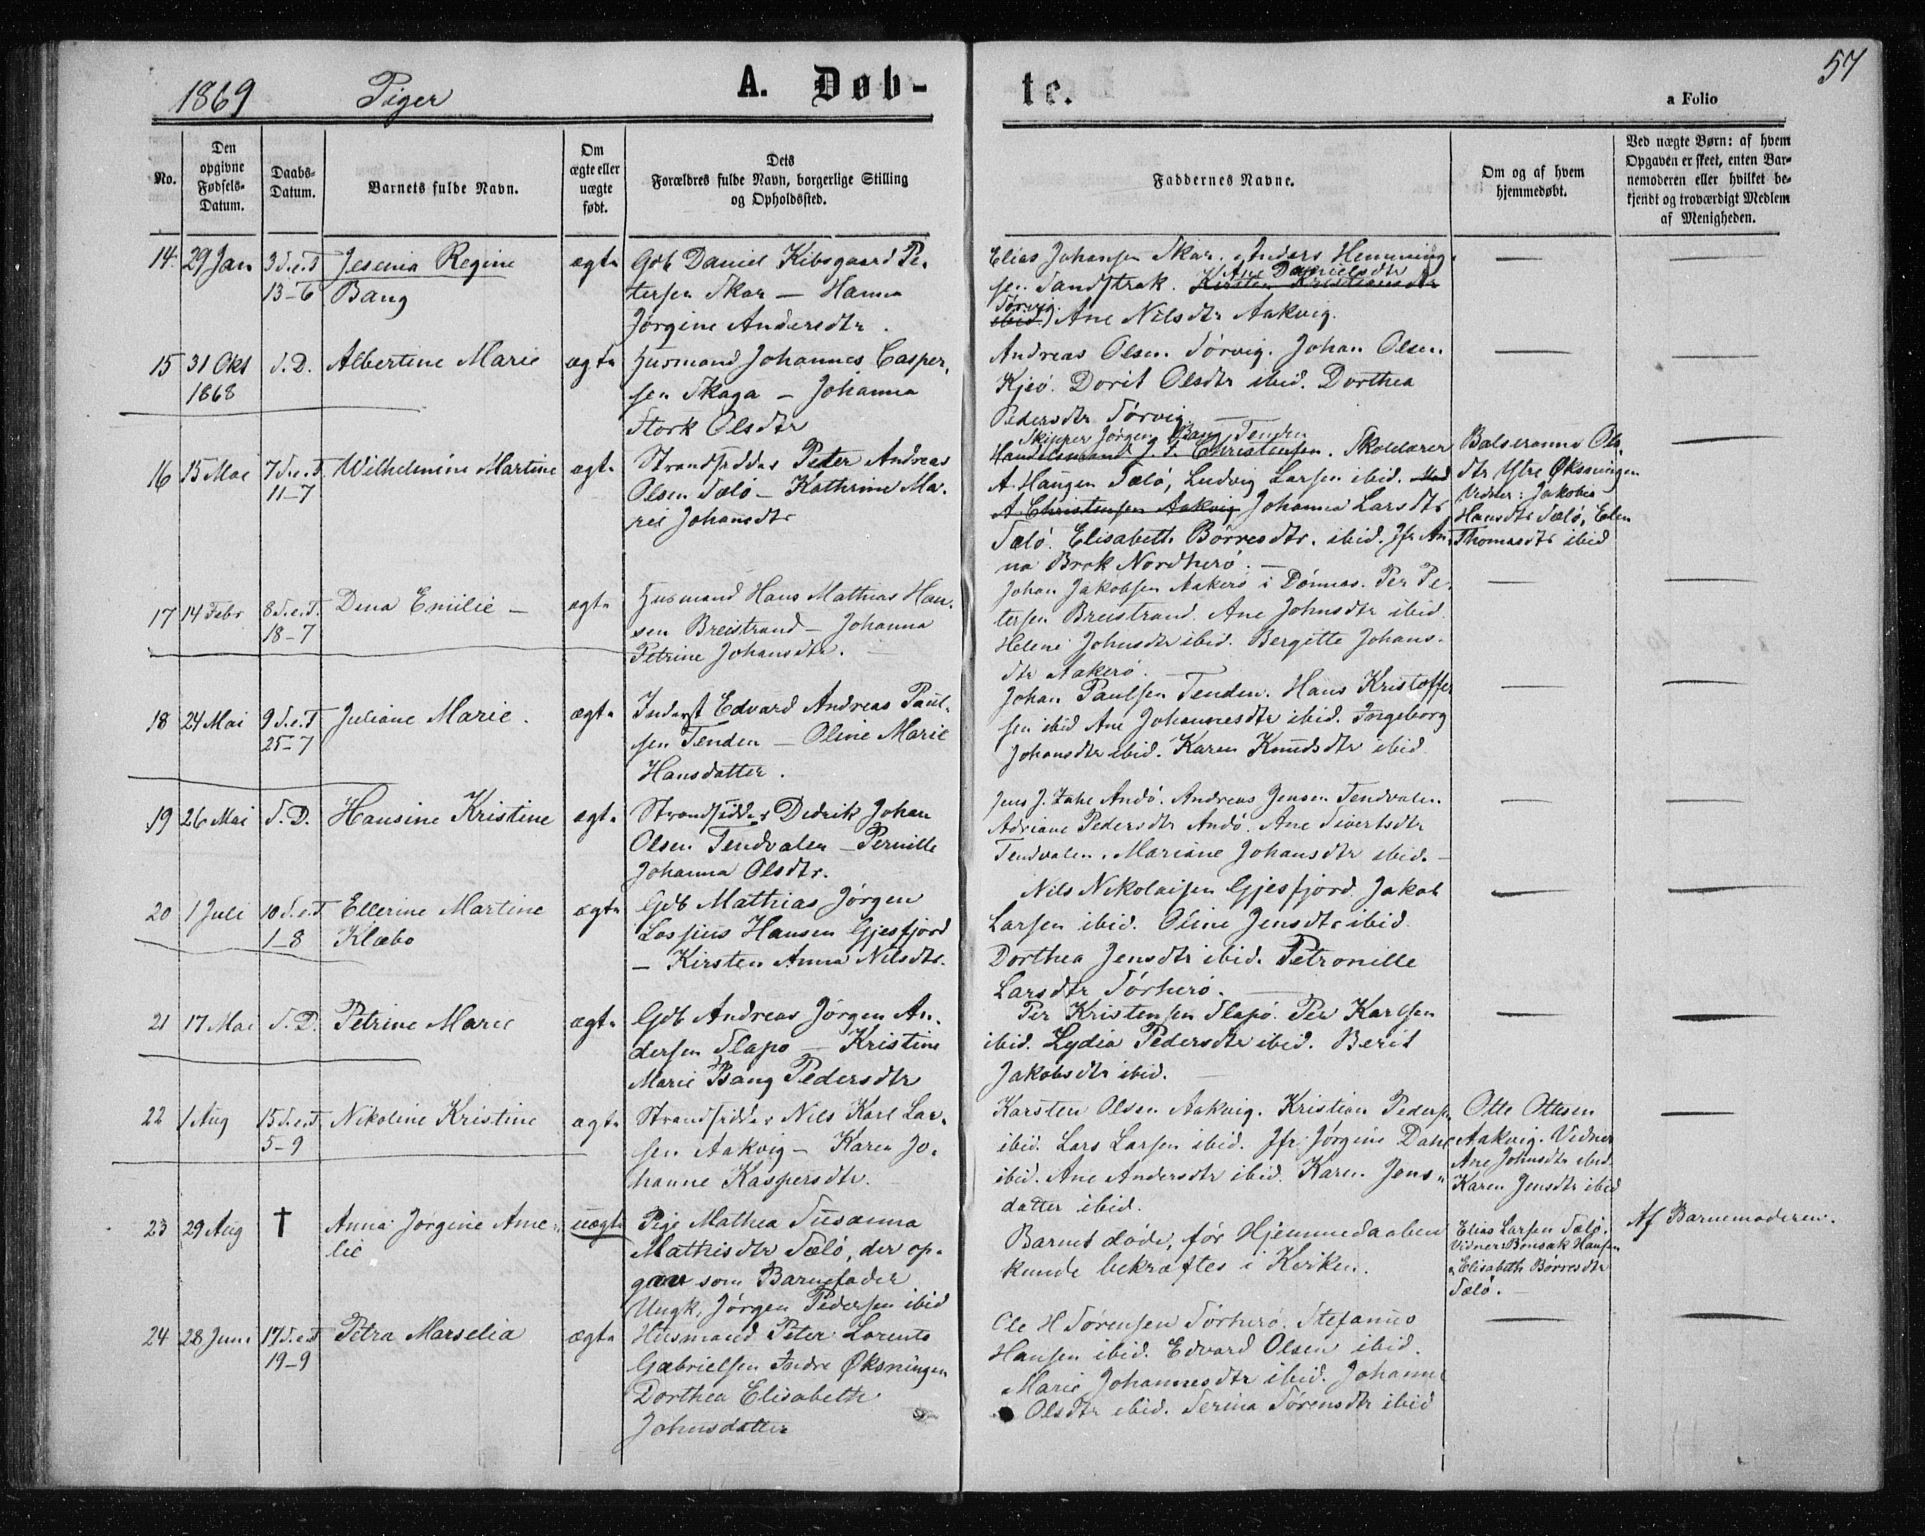 1869 Piger A. Døb-
te. 57
a Folio
No.
Den opgivne Fødsels-Datum.
Daabs-Datum.
Barnets fulde Navn.
Om ægte eller uægte født.
Dets Forældres fulde Navn, borgerlige Stilling og Opholdssted.
Faddernes Navne.
Om og af hvem hjemmedøbt.
Ved uægte Børn: af hvem Opgaven er skeet, enten Barnemoderen eller hvilket bekjendt og troværdigt Medlem af Menigheden.
14. 29 Jan 3 S.e.T Jesenia Regine ægte Gdb Daniel Kibsgaard Pe-
13-6 Bang tersen Skar — Hanna
Jørgine Andersdtr.
Elias Johansen Skar. Anders Hemming-
sen Sandstrak. Kirsten Kristiansdtr
Ane Danielsdtr
Sørvig
ibid) Ane Nilsdtr Aakvig.
15 31 Okt S.D. Albertine Marie ægte Husmand Johannes Casper-
1868 sen Skaga — Johanna
Stork Olsdtr
Andreas Olsen Sørvig. Johan Olsen
Kjeø. Dorit Olsdtr ibid. Dorthea
Pedersdtr Sørvig —
16 15 Mai 7 S.e.T. Wilhelmine Martine ægte Strandsidder Peter Andreas
11-7 Olsen Sælø — Kathrine Ma-
rie Johansdtr
Skipper Jørgen Bang, Tenden
Handelsmand J. S. Christensen. Skolelærer
A Haugen Sælø, Ludvig Larsen ibid. Mad
A Christensen Aakvig Johanna Larsdtr
Sælø. Elisabeth Børresdtr. ibid. Jfr An-
na Brok Nordherø. —
Balseranna Ols-
dtr Ytre Øksningen
Vidner: Jakobia
Hansdtr Sælø, Elen
Thomasdtr ibid
17 14 Febr 8 S.e.T. Dina Emilie — ægte Husmand Hans Mathias Han-
18-7 sen Breistrand — Johanna
Petrine Johansdtr.
Johan Jakobsen Aakerø i Dønnes. Per Pe-
tersen Breistrand. Ane Johnsdtr ibid
Helene Johnsdtr ibid. Bergitte Johans-
dtr Aakerø. —
18 24 Mai 9 S.e.T Juliane Marie. ægte Inderst Edvard Andreas Paul-
25-7 sen Tenden — Oline Marie
Hansdatter.
Johan Paulsen Tenden. Hans Kristoffer-
sen ibid Ane Johannesdtr ibid. Ingeborg
Johansdtr ibid. Karen Knudsdtr ibid
19 26 Mai S.D. Hansine Kristine ægte Strandsidder Didrik Johan
Olsen Tendvalen — Pernille
Johanna Olsdtr.
Jens J. Zahl Andø. Andreas Jensen Tendvalen.
Adriane Pedersdtr Andø. Ane Sivertsdtr
Tendvalen. Mariane Johansdtr ibid. —
20 1 Juli 10 S.e.T Ellerine Martine ægte Gdb Mathias Jørgen
1-8 Klæbo Lossius Hansen Gjesfjord
— Kirsten Anna Nilsdtr.
Nils Nikolaisen Gjesfjord. Jakob
Larsen ibid. Oline Jensdtr ibid.
Dorthea Jensdtr ibid. Petronille
Larsdtr Sørherø. —
21 17 Mai S.D. Petrine Marie ægte Gdb Andreas Jørgen An-
dersen Slapø — Kristine
Marie Bang Pedersdtr
Per Kristensen Slapø. Per Karlsen
ibid. Lydia Pedersdtr ibid. Berit
Jakobsdtr ibid. —
22 1 Aug 15 S.e.T. Nikoline Kristine ægte Strandsidder Nils Karl Lar-
5-9 sen Aakvig — Karen Jo-
hanne Kaspersdtr.
Karsten Olsen Aakvig. Kristian Peders.
ibid. Lars Larsen ibid. Jfr. Jørgine Dahl
ibid. Ane Andersdtr ibid. Karen Jens-
datter ibid.
Otte Ottesen
Aakvig. Vidner
Ane Johnsdtr ibid.
Karen Jensdtr ibid
23 29 Aug † Anna Jørgine Ame- uægte Pige Mathea Susanna
lie Mathisdtr Sælø, der op-
gav som Barnefader
Ungk. Jørgen Pedersen ibid
Barnet døde, før Hjemmedaaben
kunde bekræftes i Kirken.
Elias Larsen Sælø.
Vidner: Bonsak Hansen
Elisabeth Børresdtr
Sælø.
Af Barnemoderen.
24 28 Juni 17 S.e.T Petra Marselia ægte Husmand Peter Lorents
19-9 Gabrielsen Indre Øksningen
Dorthea Elisabeth
Johnsdatter
Ole H Sørensen Sørherø. Stefanus
Hansen ibid. Edvard Olsen ibid.
Marie Johannesdtr ibid. Johanne
Olsdtr ibid. Serina Sørensdtr ibid